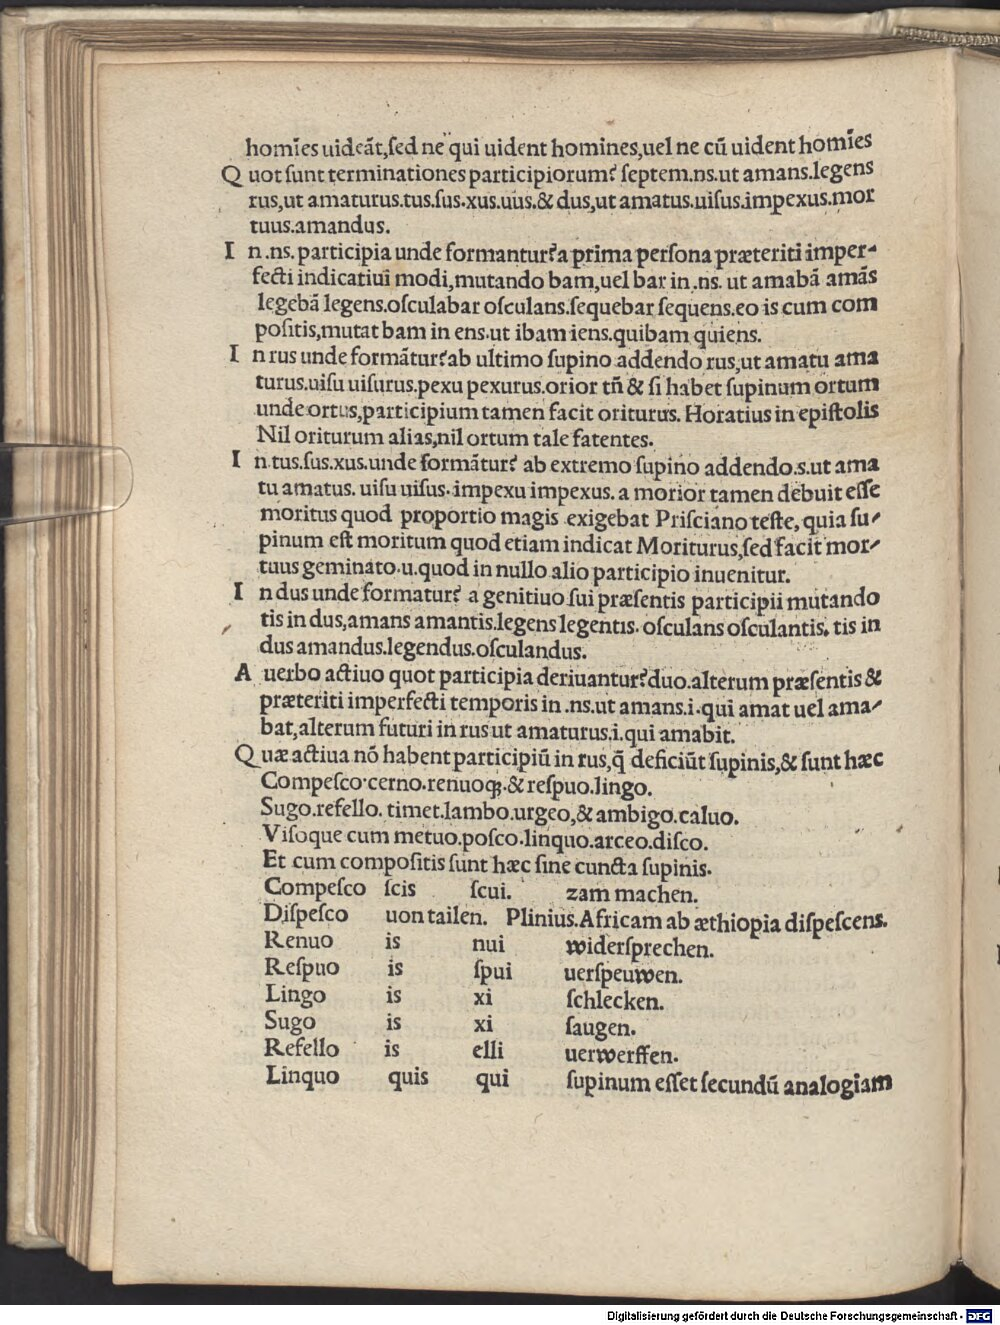 homīes uideāt,ſed ne qui uident homines,uel ne cū uident homīes
Q uot ſunt terminationes participiorum? ſeptem.ns.ut amans.legens
rus,ut amaturus.tus.ſus.xus.uus.& dus,ut amatus.uiſus.impexus.mor
tuus.amandus.
I n .ns. participia unde formantur?a prima perſona præteriti imper-
fecti indicatiui modi,mutando bam,uel bar in .ns. ut amabā amās
legebā legens.oſculabar oſculans.ſequebar ſequens.eo is cum com
poſitis,mutat bam in ens.ut ibam iens.quibam quiens.
I n rus unde formātur?ab ultimo ſupino addendo rus,ut amatu ama
turus.uiſu uiſurus.pexu pexurus.orior tñ & ſi habet ſupinum ortum
unde ortus,participium tamen facit oriturus. Horatius in epiſtolis
Nil oriturum alias,nil ortum tale fatentes.
I n.tus.ſus.xus.unde formātur? ab extremo ſupino addendo.s.ut ama
tu amatus. uiſu uiſus.impexu impexus. a morior tamen debuit eſſe
moritus quod proportio magis exigebat Priſciano teſte, quia ſu-
pinum eſt moritum quod etiam indicat Moriturus,ſed facit mor-
tuus geminato.u.quod in nullo alio participio inuenitur.
I n dus unde formatur? a genitiuo ſui præſentis participii mutando
tis in dus,amans amantis.legens legentis. oſculans oſculantis. tis in
dus amandus.legendus.oſculandus.
A uerbo actiuo quot participia deriuantur?duo.alterum præſentis &
præteriti imperfecti temporis in .ns.ut amans.i.qui amat uel ama-
bat,alterum futuri in rus ut amaturus.i.qui amabit.
Q uæ actiua nō habent participiū in rus,q̄ deficiūt ſupinis,& ſunt hæc
Compeſco.cerno.renuoqꝫ.& reſpuo.lingo.
Sugo.refello. timet.lambo.urgeo,& ambigo.caluo.
Viſoque cum metuo.poſco.linquo.arceo.diſco.
Et cum compoſitis ſunt hæc ſine cuncta ſupinis.
Compeſco ſcis ſcui. zam machen.
Diſpeſco uon tailen. Plinius.Africam ab æthiopia diſpeſcens.
Renuo is nui widerſprechen.
Reſpuo is ſpui uerſpeuwen.
Lingo is xi ſchlecken.
Sugo is xi ſaugen.
Refello is elli uerwerffen.
Linquo quis qui ſupinum eſſet ſecundū analogiam
Digitalisierung gefördert durch die Deutsche Forschungsgemeinschaft - DFG